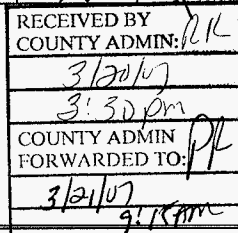 RECEIVED BY
COUNTY ADMIN: RK
3/20/07
3:30 pm
COUNTY ADMIN
FORWARDED TO:
3/21/07
9:15 AM